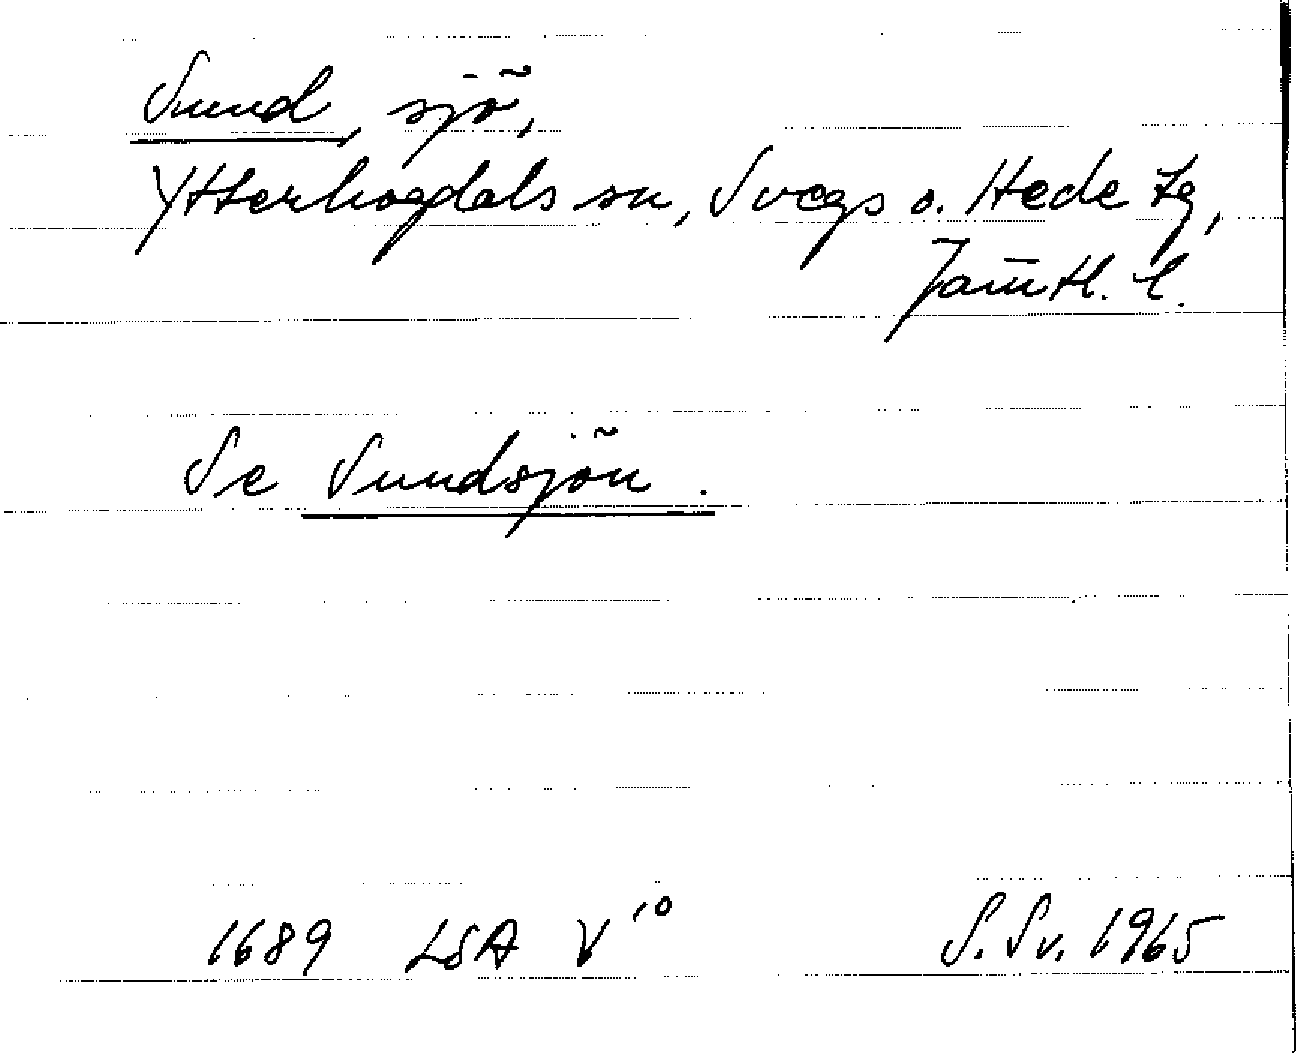 Sund, sjö,
Ytterhogdals sn, Svegs o. Hede tg,
Jämtl. l.
Se Sundsjön.
1689 LSA V¹⁰ S. Sv. 1965